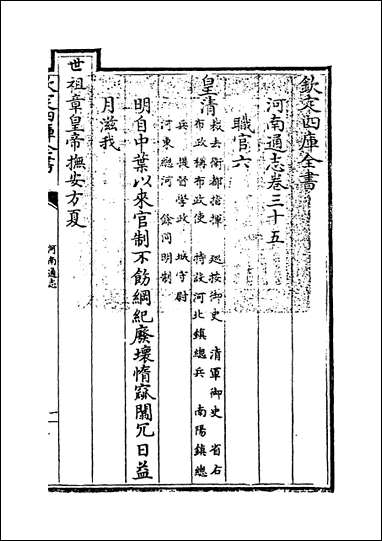 欽定四庫全書
河南通志卷三十五
職官六
皇清
裁去衛都指揮 巡按御史 清軍御史 省右
布政稱布政使 特設河北鎮總兵 南陽鎮總
兵 提督學政 城守尉
河東總河 餘同明制
明自中葉以來官制不飭綱紀廢壞惰窳闒冗日益
月滋我
世祖章皇帝撫安方夏
欽定四庫全書
河南通志